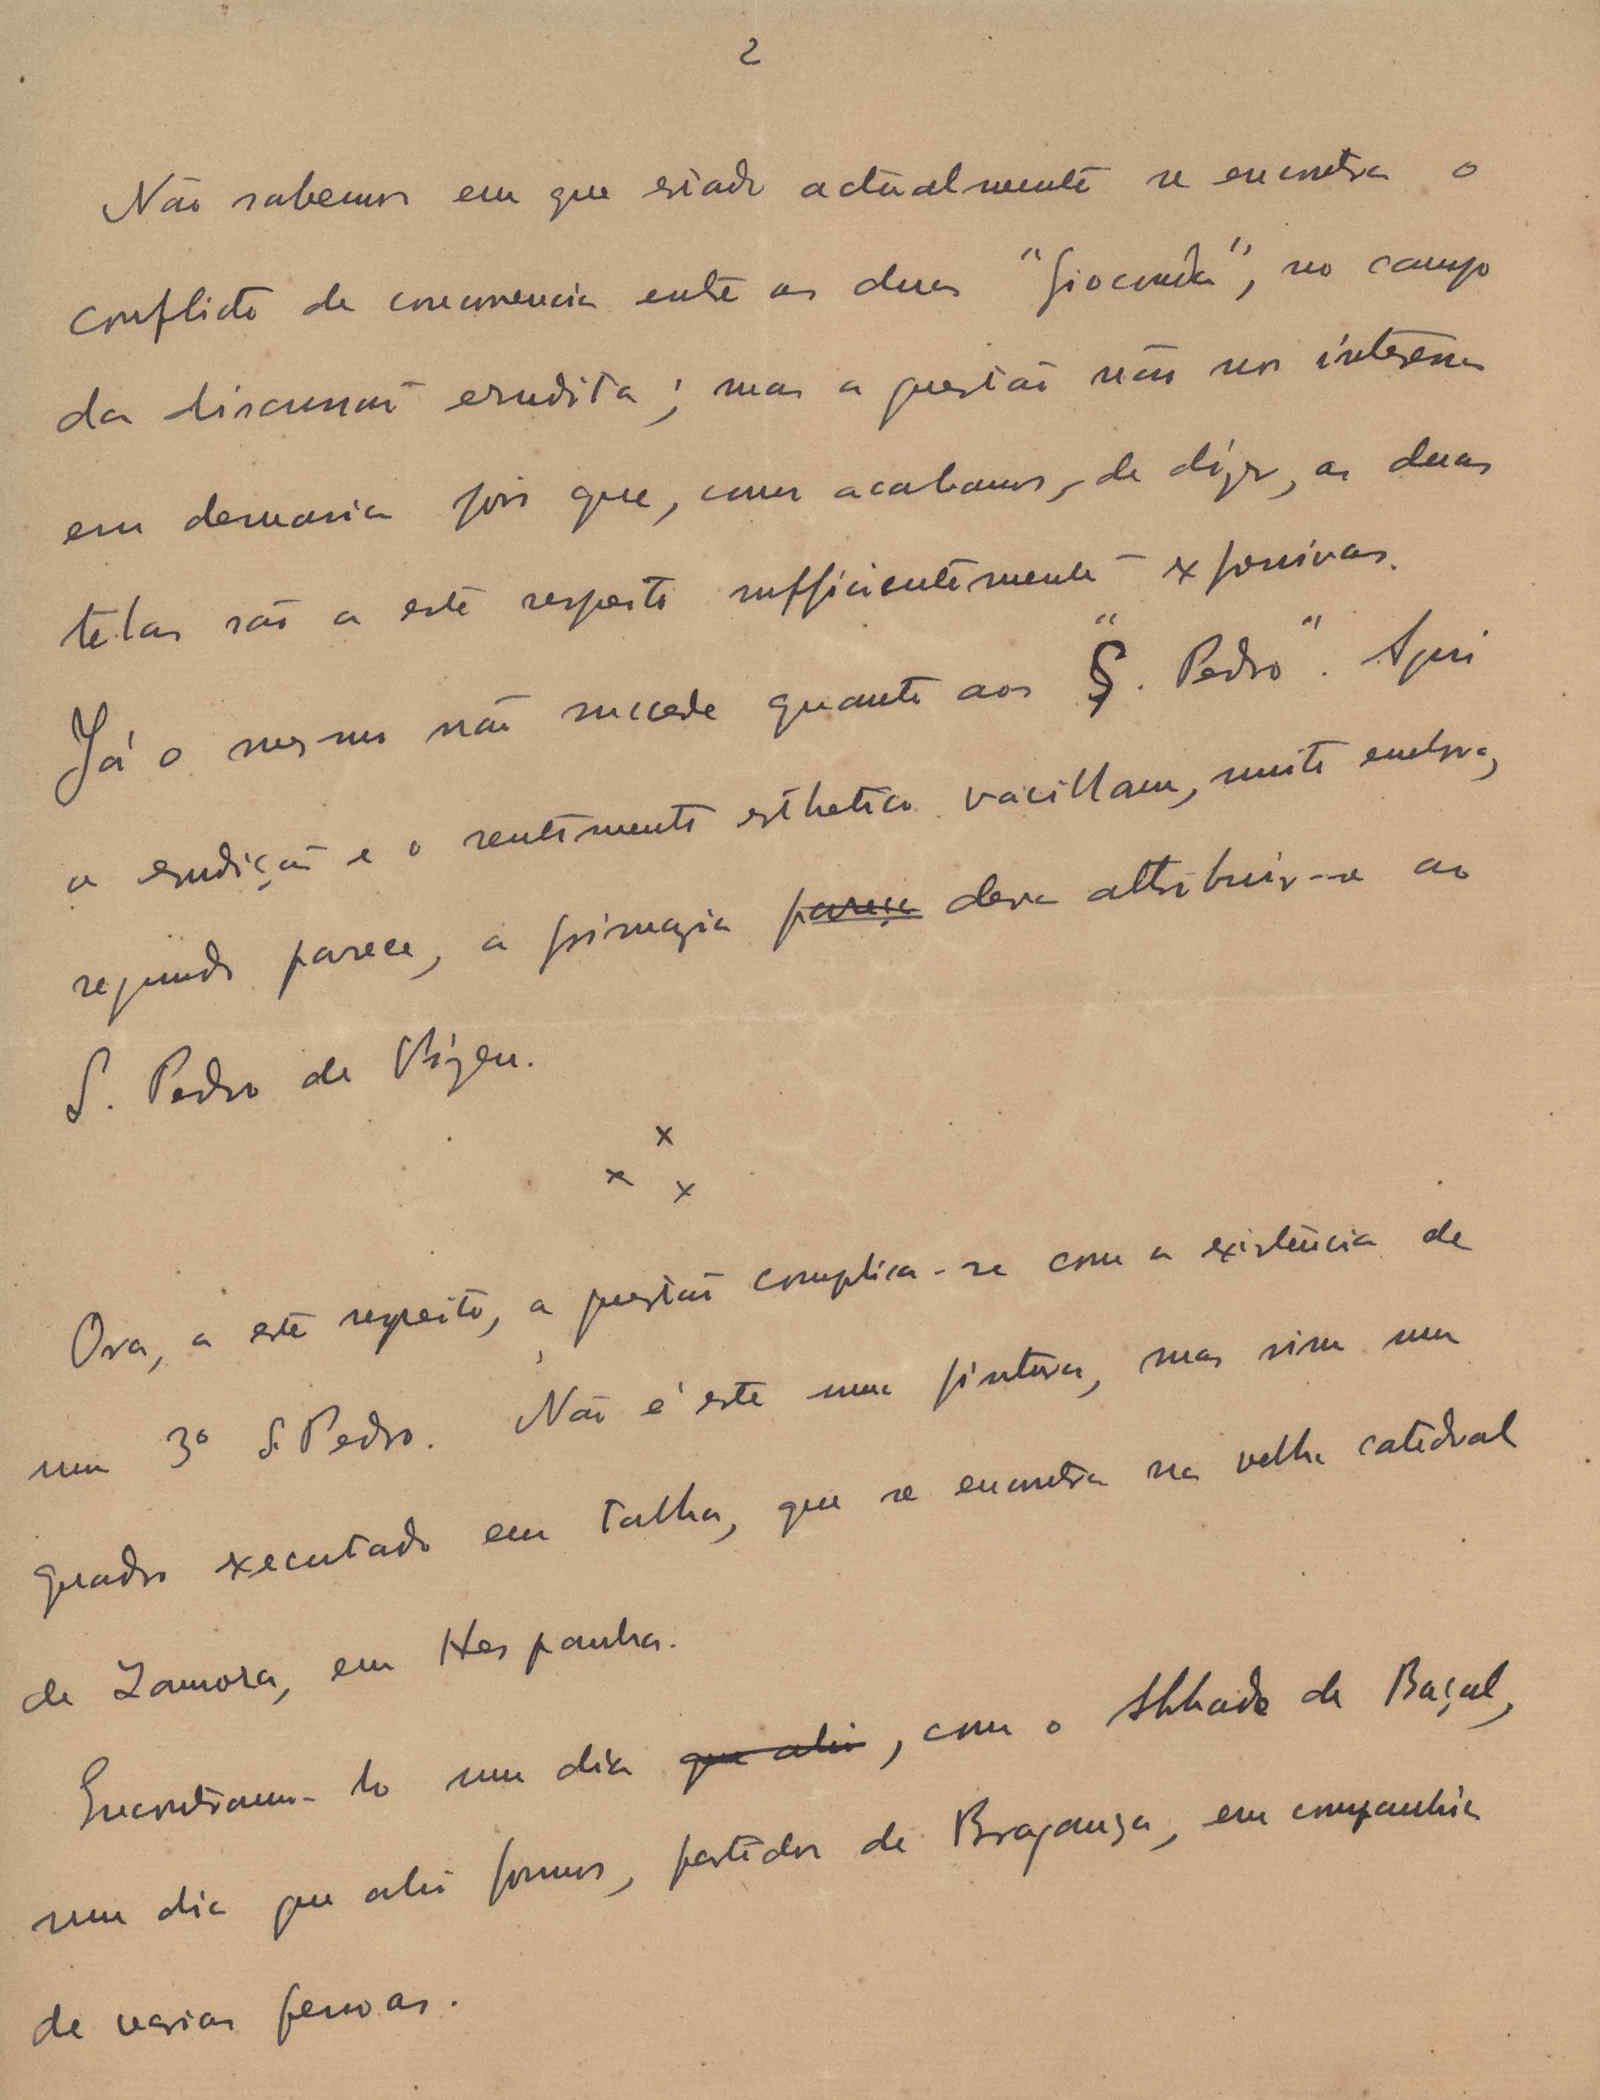 2
Não sabemos em que estado actualmente se encontra o
conflicto de concorrencia entre as duas "Gioconda", no campo
da discussão erudita; mas a questão não nos interessa
em demasia pois que, como acabamos, de dizer, as duas
telas são a este respeito sufficientemente expressivas.
Já o mesmo não succede quanto aos "S. Pedro". Aqui
a erudição e o sentimento esthetico vacillam, muito embora,
segundo parece, a primazia pareça deva attribuir-se ao
S. Pedro de Vizeu.
x
x x
Ora, a este respeito, a questão complica-se com a existência de
um 3º S. Pedro. Não é este uma pintura, mas sim um
quadro executado em talha, que se encontra na velha catedral
de Zamora, em Hespanha.
Encontramo-lo um dia que ali, com o Abbade de Baçal,
num dia que ali fomos, partidos de Bragança, em companhia
de varias pessoas.